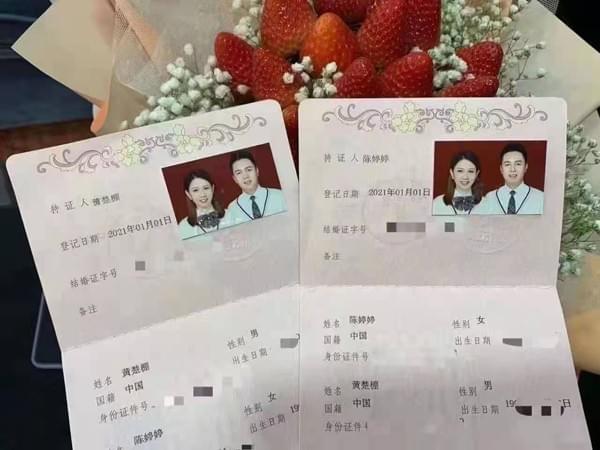 持证人 黄楚棚
登记日期 2021年01月01日
结婚证字号
备注
姓名 黄楚棚 性别 男
国籍 中国 出生日期
身份证件号
姓名 陈婷婷 性别 女
出生日期 19
持证人 陈婷婷
登记日期 2021年01月01日
结婚证字号
备注
姓名 陈婷婷 性别 女
国籍 中国 出生日期
身份证件号
姓名 黄楚棚 性别 男
国籍 中国 出生日期 19
身份证件号